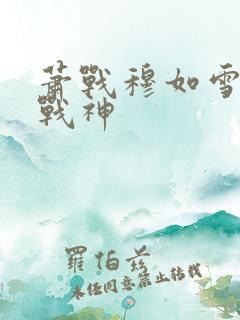 蕭戰穆如雪
戰神
羅伯茲
未經同意禁止轉載